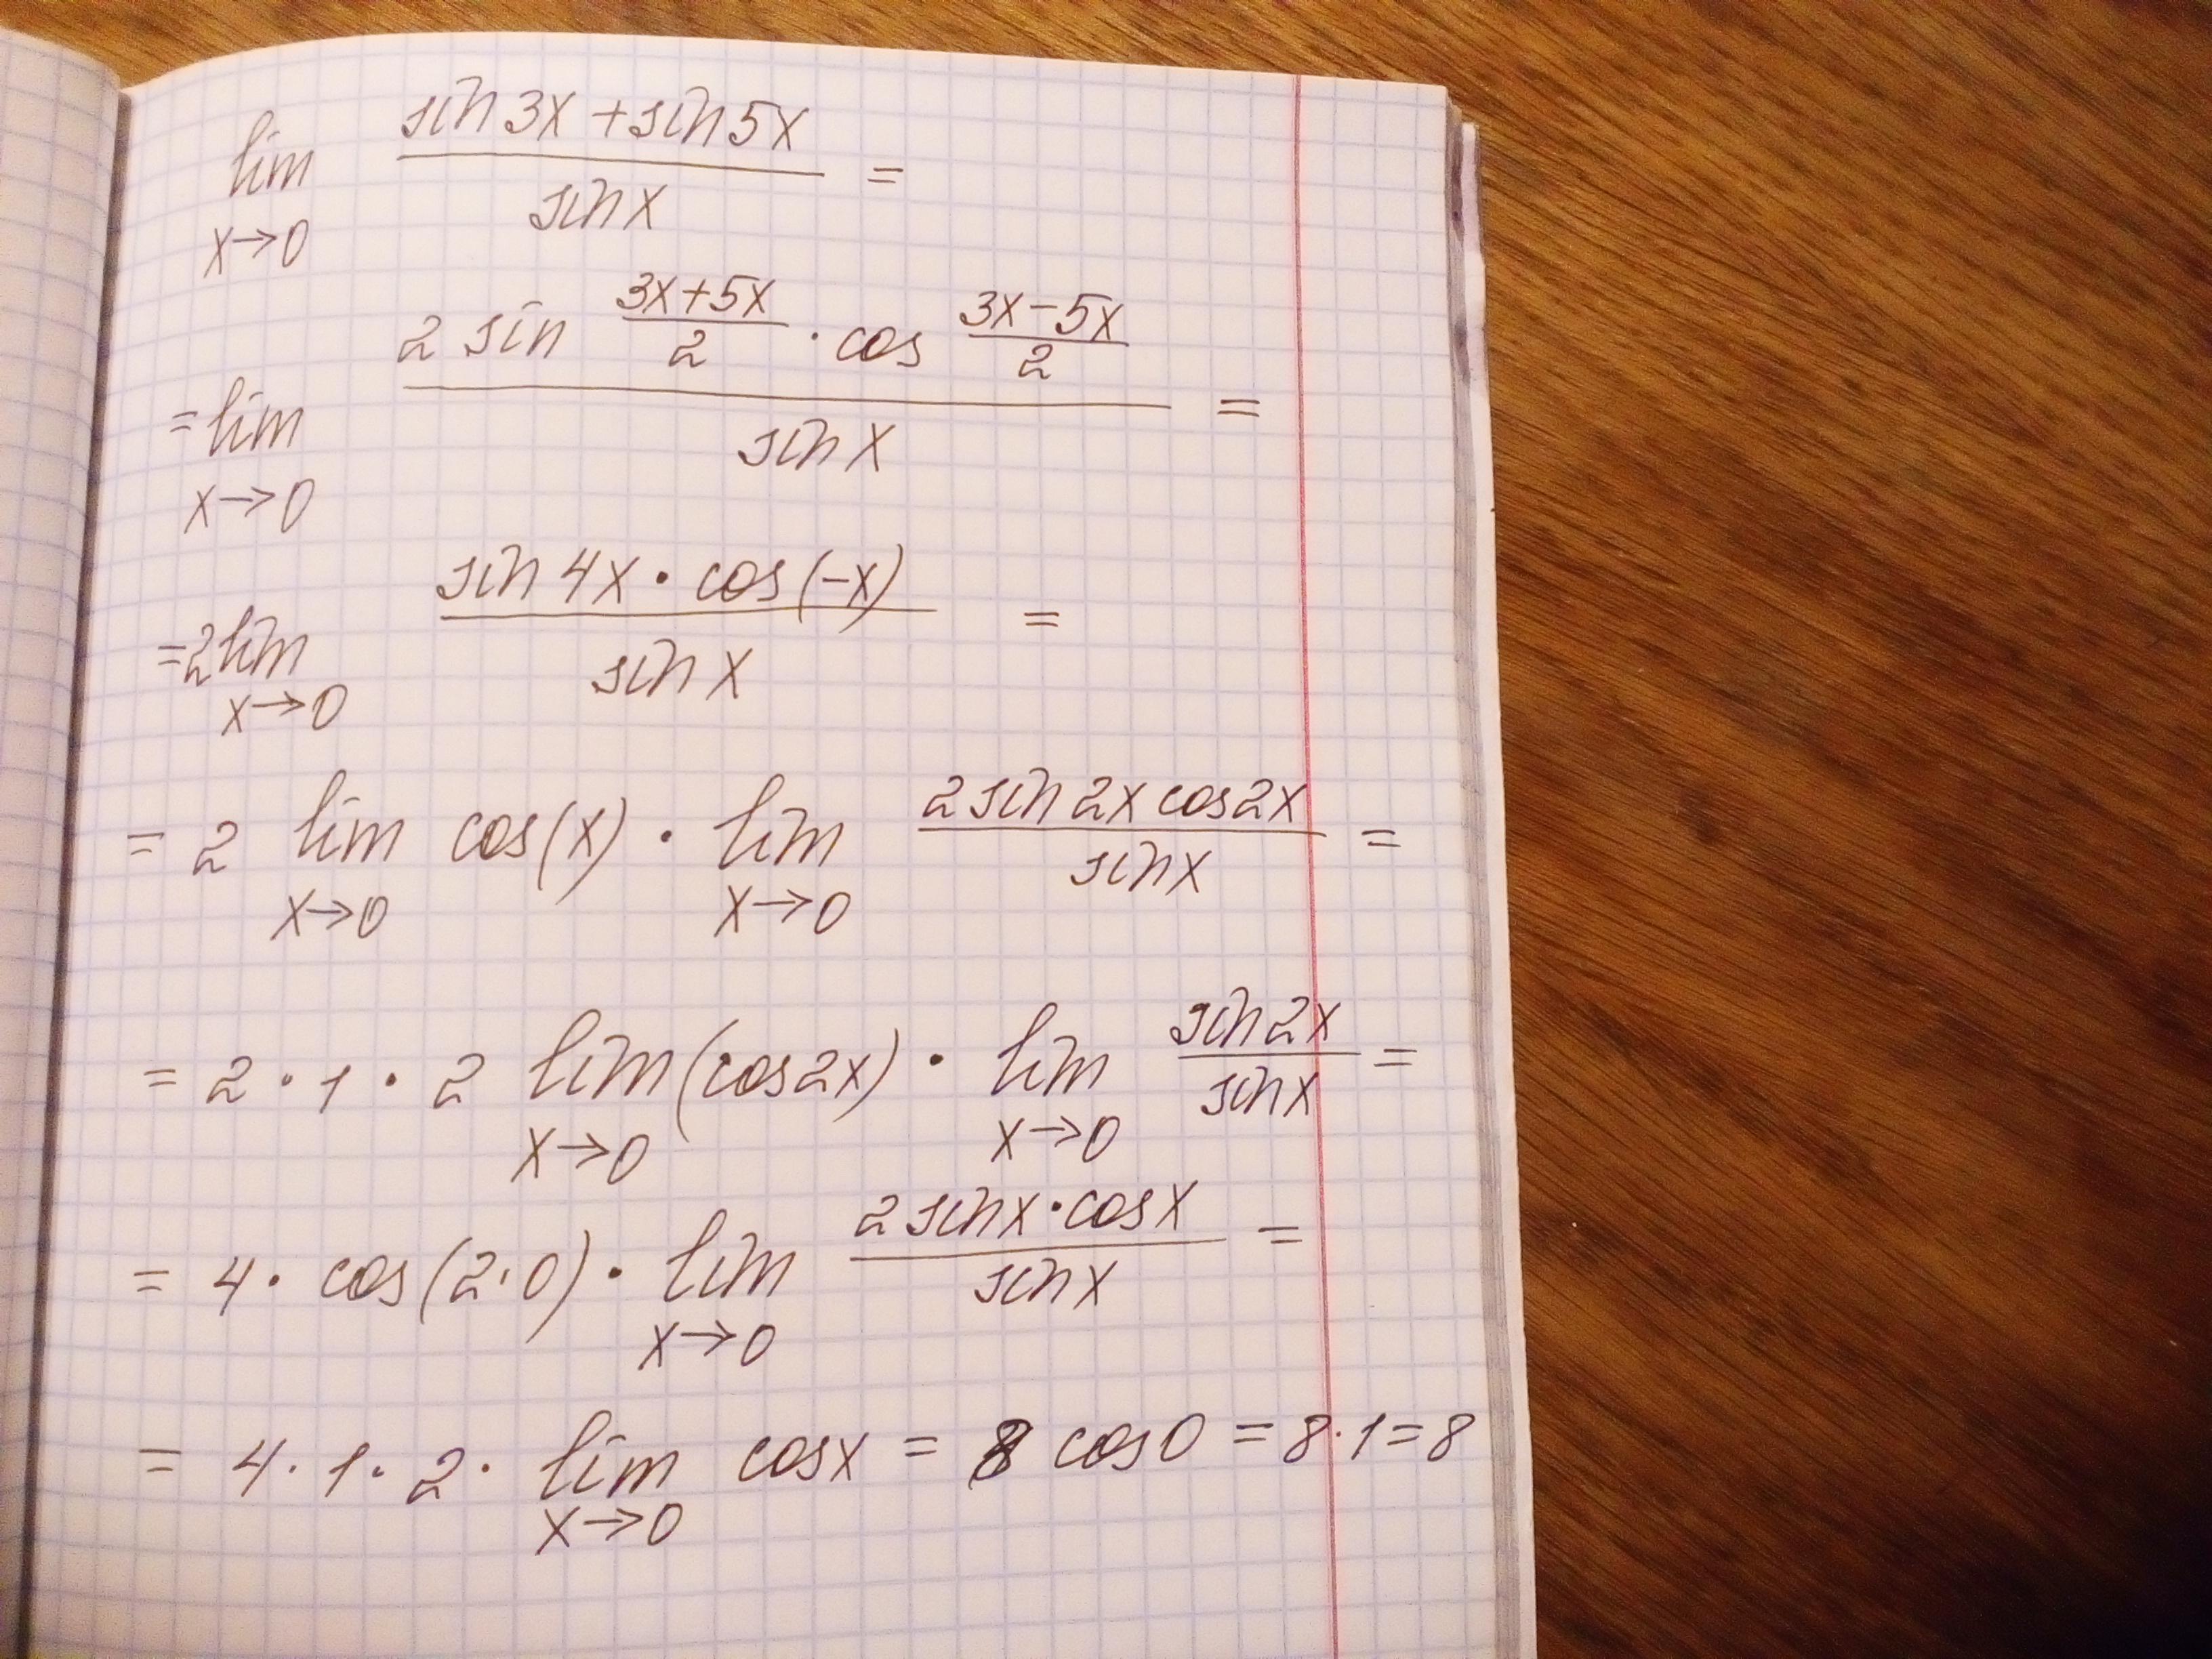 lim x→0 (sin 3x + sin 5x)/(sin x) =
= lim x→0 (2 sin (3x+5x)/2 · cos (3x−5x)/2)/(sin x) =
= 2 lim x→0 (sin 4x · cos(−x))/(sin x) =
= 2 lim x→0 cos(x) · lim x→0 (2 sin 2x cos 2x)/(sin x) =
= 2 · 1 · 2 lim x→0 (cos 2x) · lim x→0 (sin 2x)/(sin x) =
= 4 · cos(2·0) · lim x→0 (2 sin x · cos x)/(sin x) =
= 4 · 1 · 2 · lim x→0 cos x = 8 cos 0 = 8 · 1 = 8